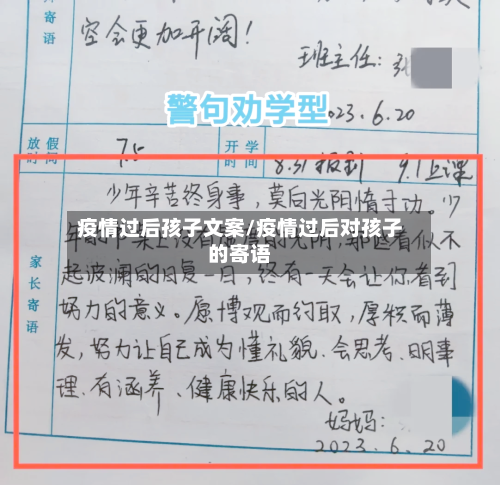 寄语
空会更加开阔！
班主任：
警句劝学型
2023.6.20
放假时间
7.5
开学时间
8.31报到 9.1上课
家长寄语
少年辛苦终身事，莫向光阴惰寸功。少
疫情过后孩子文案/疫情过后对孩子
的寄语
年的
起波澜的日复一日，终有一天会让你看到
努力的意义。愿博观而约取，厚积而薄
发，努力让自己成为懂礼貌、会思考、明事
理、有涵养、健康快乐的人。
妈妈：
2023.6.20